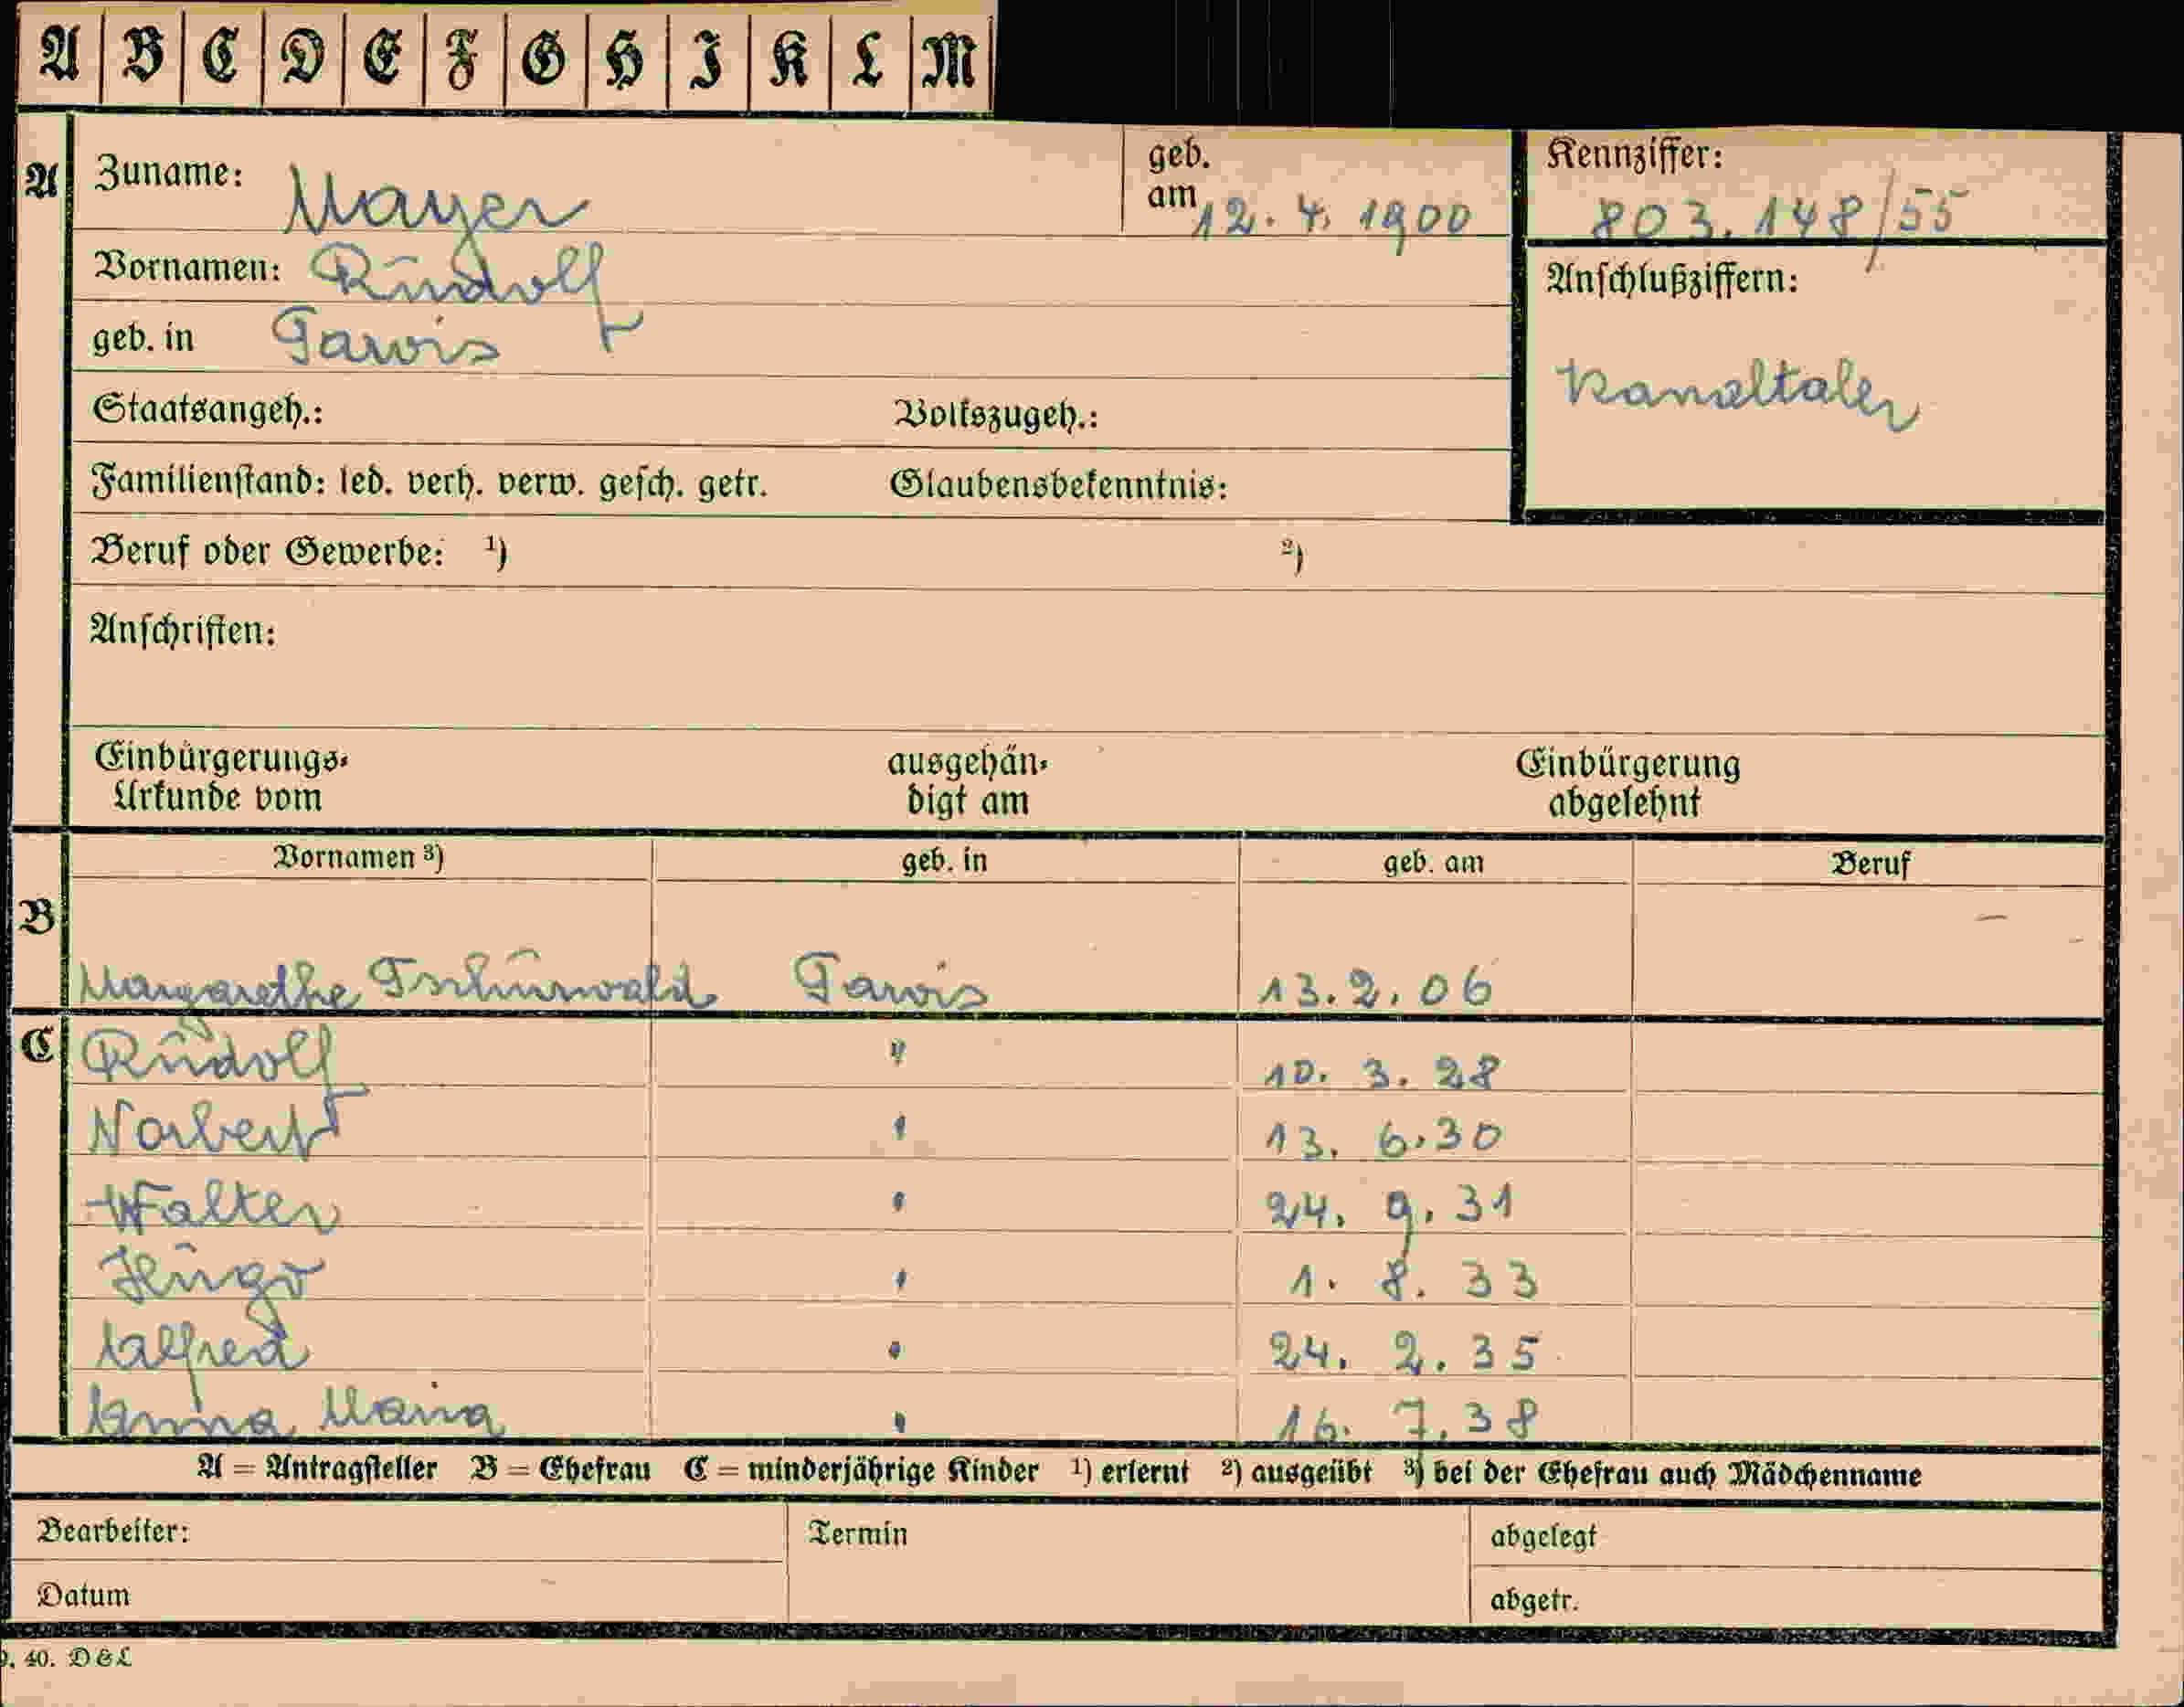 A B C D E F G H I K L M
A Zuname: Mayer geb. am 12. 4. 1900 Kennziffer: 803.148/55
Vornamen: Rudolf Anschlußziffern:
geb. in Tarvis Kanaltaler
Staatsangeh.: Volkszugeh.:
Familienstand: led. verh. verw. gesch. getr. Glaubensbekenntnis:
Beruf oder Gewerbe: ¹) ²)
Anschriften:
Einbürgerungs- ausgehän- Einbürgerung
Urkunde vom digt am abgelehnt
Vornamen ³) geb. in geb. am Beruf
B
Margarethe Tschurwald Tarvis 13. 2. 06
C Rudolf " 10. 3. 28
Norbert " 13. 6. 30
Walter " 24. 9. 31
Hugo " 1. 8. 33
Alfred " 24. 2. 35
Anna Maria " 16. 7. 38
A = Antragsteller B = Ehefrau C = minderjährige Kinder ¹) erlernt ²) ausgeübt ³) bei der Ehefrau auch Mädchenname
Bearbeiter: Termin abgelegt
Datum abgetr.
40. D&L